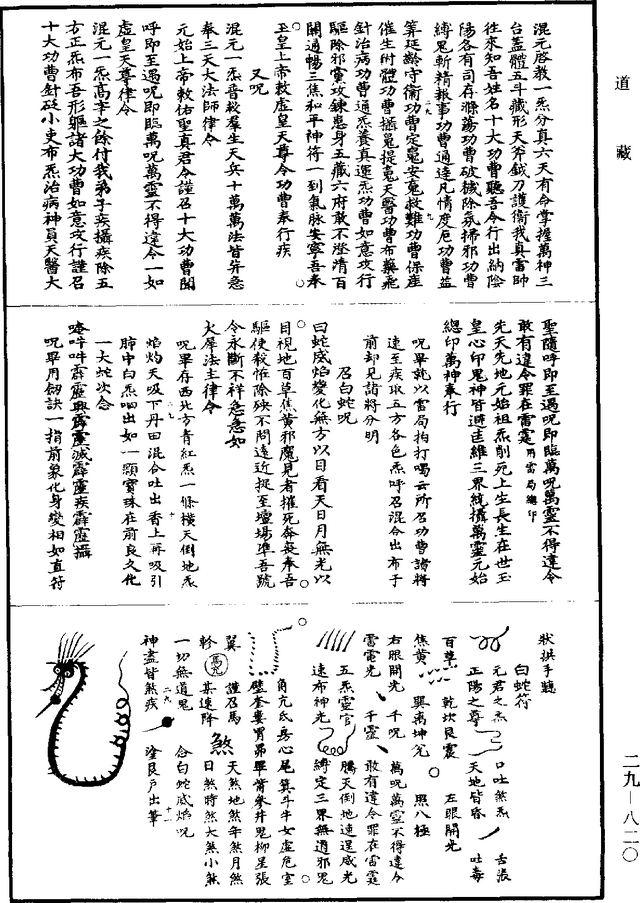 道藏
混元啓教一炁分真六天有命掌握萬神三
台蓋體五斗藏形天斧鉞刀護衛我真雷帥
往來知吾姓名十大功曹聽吾令行出納陰
陽各有司存滌蕩功曹破穢除氛掃邪功曹
縛鬼斬精報事功曹通達凡情度厄功曹益
筭延齡守衛功曹定冤安冤救難功曹保産
催生附體功曹攝鬼提鬼天醫功曹布藥飛
針治病功曹通炁養真運炁功曹如意攻行
驅除邪靈攻錬患身五藏六府敢不澄清百
關通暢三焦和平神符一到氣脉安寧吾奉
玉皇上帝敕虛皇天尊令功曹奉行疾
又呪
混元一炁音敕羣生天兵十萬萬法皆昇急
奉三天大法師律令
元始上帝敕佑聖真君令謹召十大功曹聞
呼即至遇呪即臨萬呪萬靈不得違令一如
虛皇天尊律令
混元一炁高字之餘付我弟子疾攝疾除五
方正炁布吾形軀諸大功曹如意攻行謹召
十大功曹針砭小吏布炁治病神員天醫大
聖隨呼即至遇呪即臨萬呪萬靈不得違令
敢有違令罪在雷霆用雷局總印
先天先地元始祖炁削死上生長生在世玉
皇心印鬼神皆避圭維三界統攝萬靈元始
總印萬神奉行
呪畢就以雷局拍打喝云所召功曹諸將
速至疾取五方各色炁呼召混合出布于
前却見諸將分明
召白蛇呪
曰蛇威焰變化無方以目看天日月無光以
目視地百草焦黄邪魔見者摧死奔忙奉吾
驅使殺怪除殃不問遠近捉至壇場準吾號
令永斷不祥急急如
火犀法主律令
呪畢存西北方青紅炁一條橫天倒地炁
焰灼天吸下丹田混合吐出香上再吸引
肺中白炁𠵽出如一顆寶珠在前良久化
一大蛇次念
唵吽吽霹靂興霹靂滅霹靂疾霹靂攝
呪畢用劒訣一指前象化身變相如直符
狀拱手聽
白蛇符
元君之炁 口吐煞炁 舌漲
正陽之尊 天地皆昏 吐毒
百草 乾坎艮震 左眼開光
焦黄 巽离坤兌 照八極
右眼開光 千呪 萬呪萬靈不得違令
雷電光 千靈 敢有違令罪在雷霆
五炁靈官 騰天倒地速逞威光
速布神光 縛定三界無道邪鬼
角亢氐房心尾箕斗牛女虛危室
壁奎婁胃昴畢觜參井鬼柳星張
翼 謹召馬 天煞地煞年煞月煞
軫 馬充 其速降 煞 日煞時煞大煞小煞
一切無道鬼 合白蛇威焰呪
神盡皆煞疾 塗艮户出筆
二九—八二〇